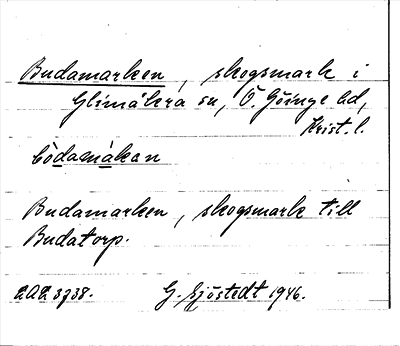 Budamarken, skogsmark i
Glimåkra sn, Ö. Göinge hd,
Krist. l.
bo̱damåkan
Budamarken, skogsmark till
Budatorp.
3738.
G. Sjöstedt 1946.